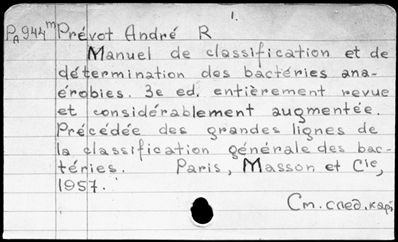 1.
PA944m Prévot André R
Manuel de classification et de
détermination des bactéries ana-
érobies. 3e ed. entièrement revue
et considérablement augmentée.
Précédée des grandes lignes de
la classification générale des bac-
téries. Paris, Masson et Cie,
1957.
См. след. карт